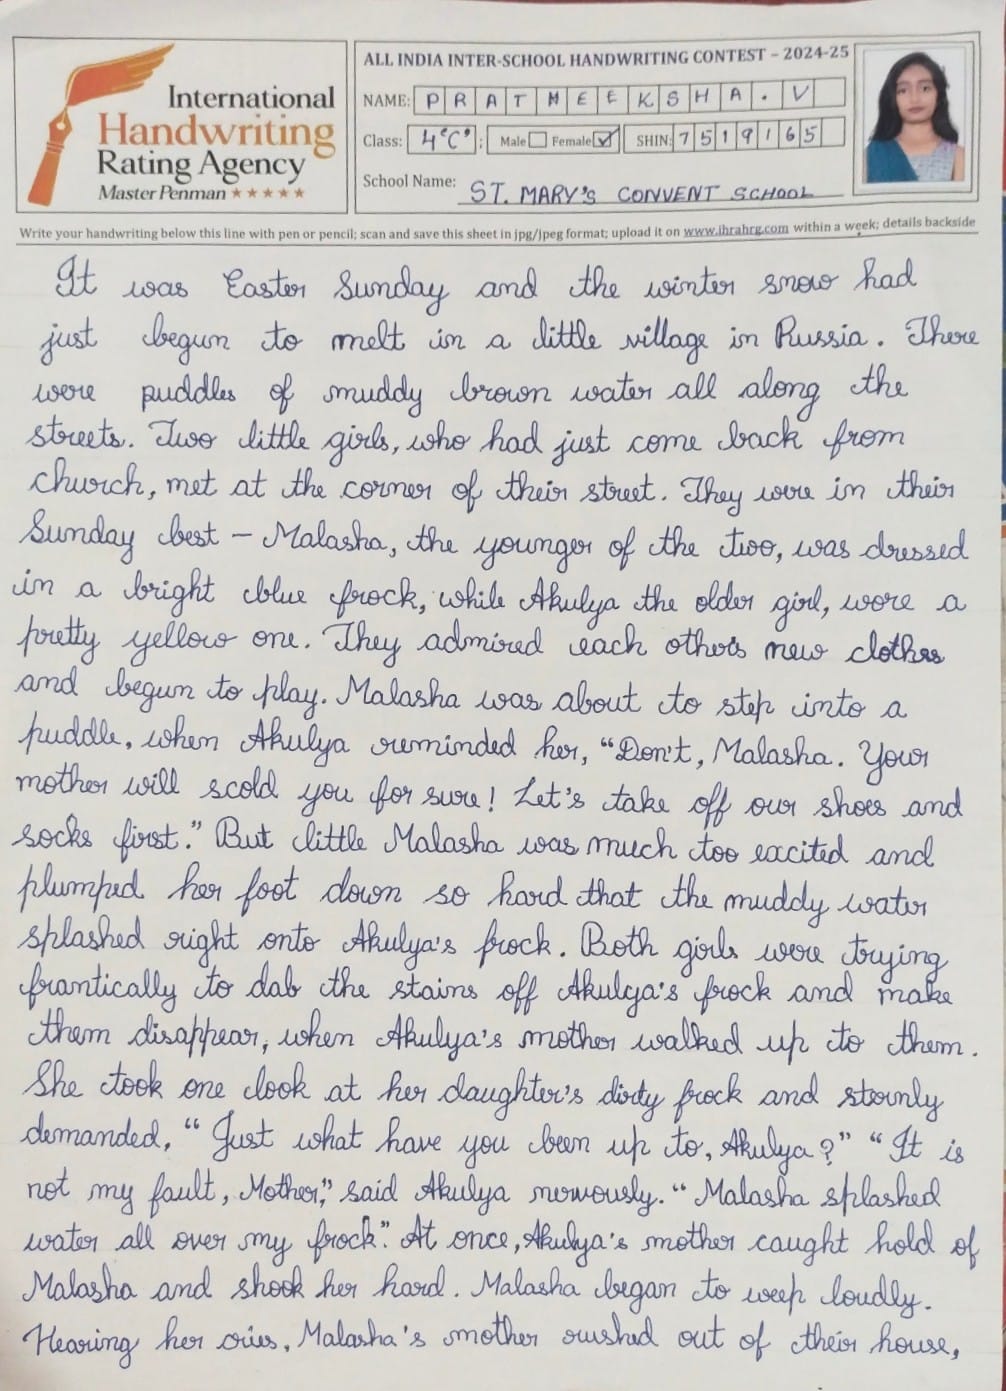 International
Handwriting
Rating Agency
Master Penman ★★★★★
ALL INDIA INTER-SCHOOL HANDWRITING CONTEST – 2024-25
NAME: PRATHEEKSHA.V
Class: 4'C' Male Female ✓ SHIN: 7519165
School Name: ST. MARY'S CONVENT SCHOOL
Write your handwriting below this line with pen or pencil; scan and save this sheet in jpg/jpeg format; upload it on www.ihrahrg.com within a week; details backside
It was Easter Sunday and the winter snow had
just begun to melt in a little village in Russia. There
were puddles of muddy brown water all along the
streets. Two little girls, who had just come back from
church, met at the corner of their street. They were in their
Sunday best – Malasha, the younger of the two, was dressed
in a bright blue frock, while Akulya the older girl, wore a
pretty yellow one. They admired each other's new clothes
and begun to play. Malasha was about to step into a
puddle, when Akulya reminded her, "Don't, Malasha. Your
mother will scold you for sure! Let's take off our shoes and
socks first." But little Malasha was much too excited and
plumped her foot down so hard that the muddy water
splashed right onto Akulya's frock. Both girls were trying
frantically to dab the stains off Akulya's frock and make
them disappear, when Akulya's mother walked up to them.
She took one look at her daughter's dirty frock and sternly
demanded, "Just what have you been up to, Akulya?" "It is
not my fault, Mother," said Akulya nervously. "Malasha splashed
water all over my frock". At once, Akulya's mother caught hold of
Malasha and shook her hard. Malasha began to weep loudly.
Hearing her cries, Malasha's mother rushed out of their house,